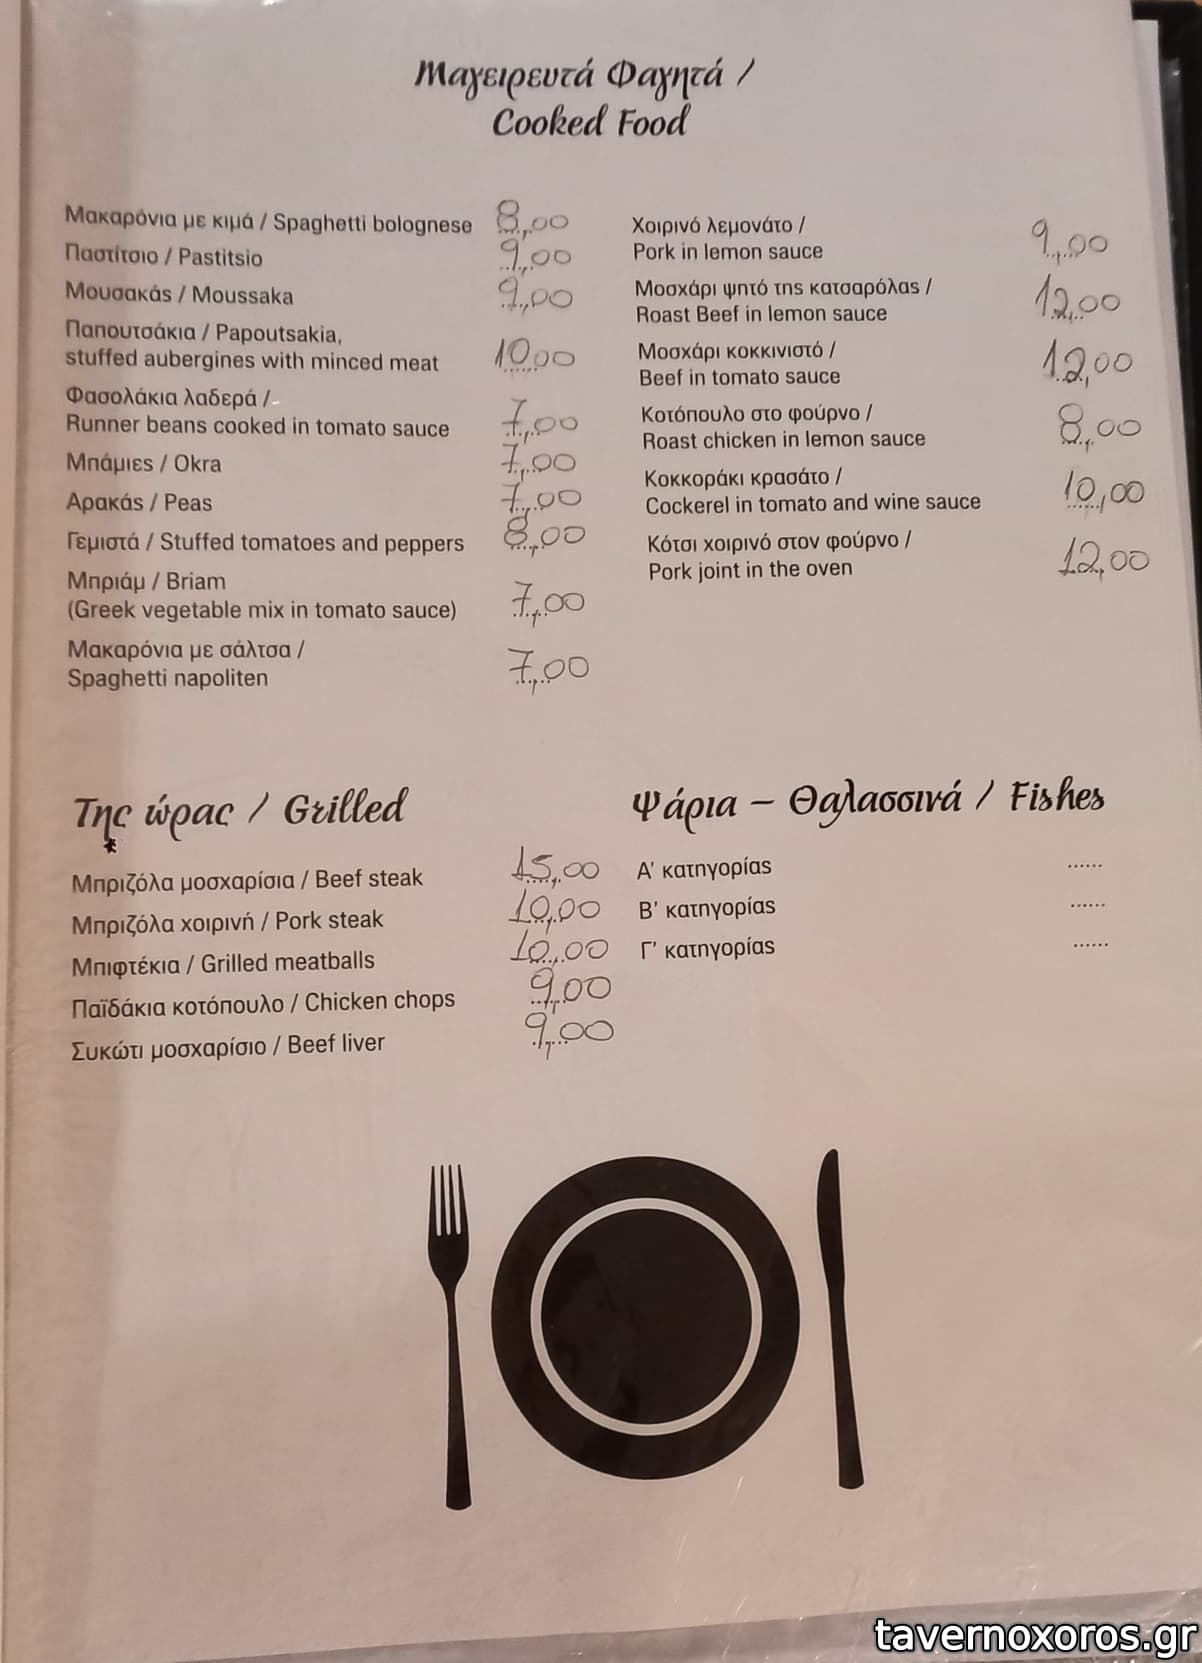 Μαγειρευτά Φαγητά /
Cooked Food
Μακαρόνια με κιμά / Spaghetti bolognese 8,00
Παστίτσιο / Pastitsio 9,00
Μουσακάς / Moussaka 9,00
Παπουτσάκια / Papoutsakia,
stuffed aubergines with minced meat 10,00
Φασολάκια λαδερά /
Runner beans cooked in tomato sauce 7,00
Μπάμιες / Okra 7,00
Αρακάς / Peas 7,00
Γεμιστά / Stuffed tomatoes and peppers 8,00
Μπριάμ / Briam
(Greek vegetable mix in tomato sauce) 7,00
Μακαρόνια με σάλτσα /
Spaghetti napoliten 7,00
Χοιρινό λεμονάτο /
Pork in lemon sauce 9,00
Μοσχάρι ψητό της κατσαρόλας /
Roast Beef in lemon sauce 12,00
Μοσχάρι κοκκινιστό /
Beef in tomato sauce 12,00
Κοτόπουλο στο φούρνο /
Roast chicken in lemon sauce 8,00
Κοκκοράκι κρασάτο /
Cockerel in tomato and wine sauce 10,00
Κότσι χοιρινό στον φούρνο /
Pork joint in the oven 12,00
Της ώρας / Grilled
Μπριζόλα μοσχαρίσια / Beef steak 15,00
Μπριζόλα χοιρινή / Pork steak 10,00
Μπιφτέκια / Grilled meatballs 10,00
Παϊδάκια κοτόπουλο / Chicken chops 9,00
Συκώτι μοσχαρίσιο / Beef liver 9,00
Ψάρια – Θαλασσινά / Fishes
Α' κατηγορίας ......
Β' κατηγορίας ......
Γ' κατηγορίας ......
tavernoxoros.gr